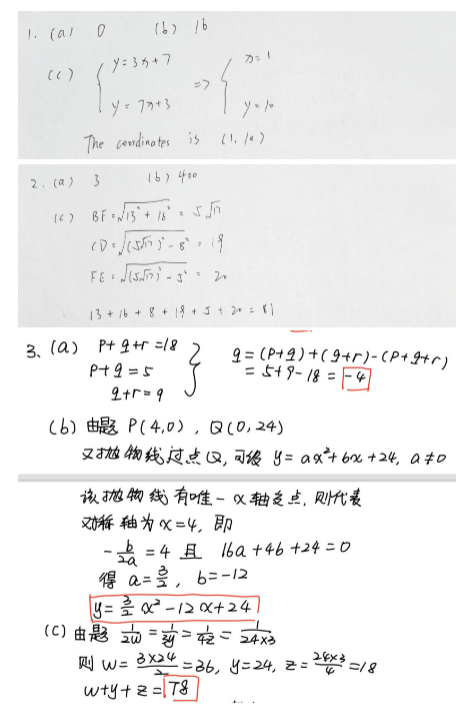 1. (a) 0 (b) 16
(c) { y = 3x + 7 => { x = 1
y = 7x + 3 y = 10
The coordinates is (1, 10)
2. (a) 3 (b) 400
(c) BF = √(13² + 16²) = 5√17
CD = √((5√17)² - 8²) = 19
FE = √((5√17)² - 5²) = 20
13 + 16 + 8 + 19 + 5 + 20 = 81
3、(a) p+q+r=18
p+q=5
q+r=9 } q=(p+q)+(q+r)-(p+q+r)
=5+9-18=-4
(b) 由题 P(4,0), Q(0,24)
又抛物线过点Q,可设 y=ax²+bx+24, a≠0
该抛物线有唯一x轴交点,则代表
对称轴为x=4,即
-b/2a=4 且 16a+4b+24=0
得 a=3/2, b=-12
y=3/2 x²-12x+24
(c) 由题 1/2w=1/3y=1/4z=1/24×3
则 w=3×24/2=36, y=24, z=24×3/4=18
w+y+z=78